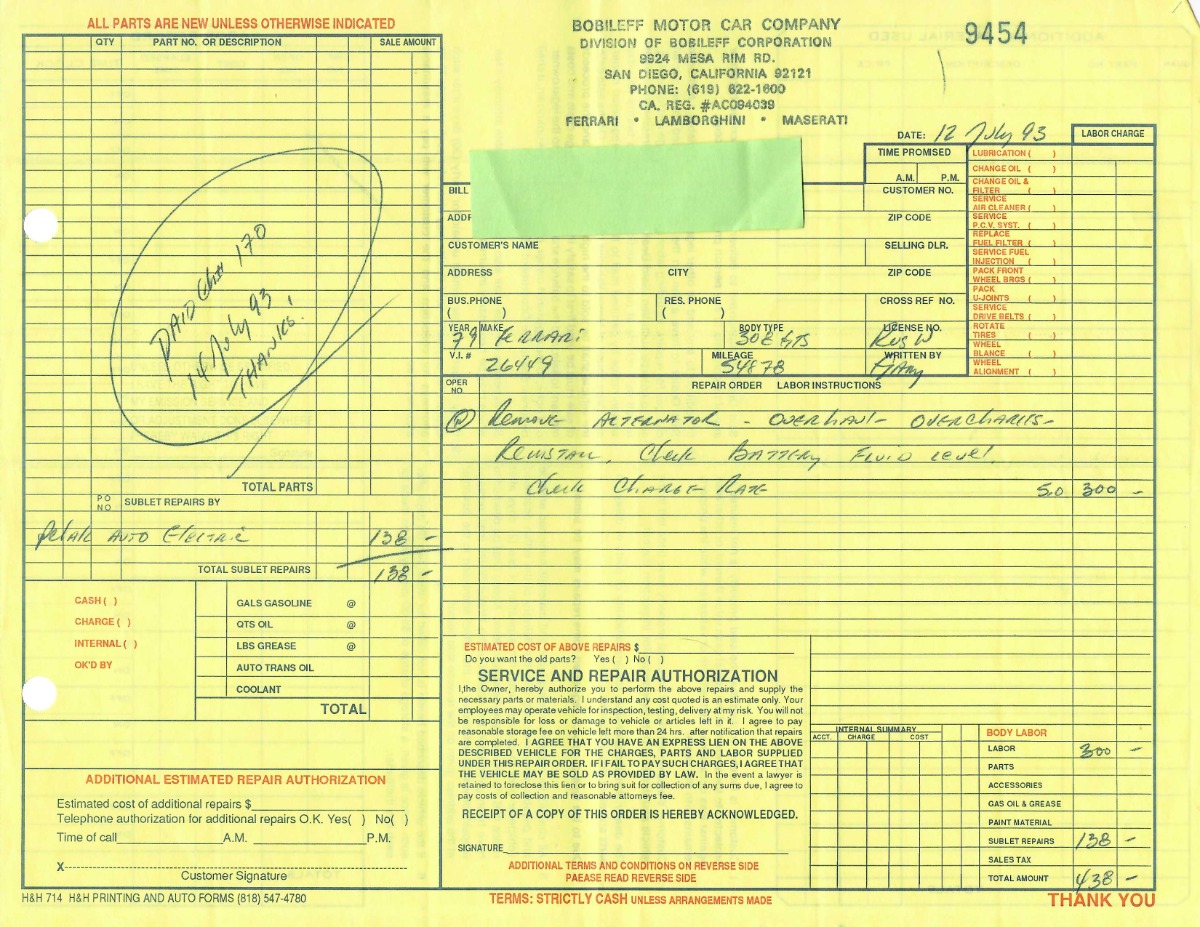 ALL PARTS ARE NEW UNLESS OTHERWISE INDICATED
QTY PART NO. OR DESCRIPTION SALE AMOUNT
PAID CK# 170
14 July 93
THANKS!
TOTAL PARTS
PO NO SUBLET REPAIRS BY
AUTO Electric 138 -
TOTAL SUBLET REPAIRS 138 -
CASH ( ) GALS GASOLINE @
CHARGE ( ) QTS OIL @
INTERNAL ( ) LBS GREASE @
OK'D BY AUTO TRANS OIL
COOLANT
TOTAL
ADDITIONAL ESTIMATED REPAIR AUTHORIZATION
Estimated cost of additional repairs $
Telephone authorization for additional repairs O.K. Yes( ) No( )
Time of call A.M. P.M.
X
Customer Signature
H&H 714 H&H PRINTING AND AUTO FORMS (818) 547-4780
BOBILEFF MOTOR CAR COMPANY
DIVISION OF BOBILEFF CORPORATION
9924 MESA RIM RD.
SAN DIEGO, CALIFORNIA 92121
PHONE: (619) 622-1600
CA. REG. #AC094039
FERRARI • LAMBORGHINI • MASERATI
9454
DATE: 12 July 93
LABOR CHARGE
TIME PROMISED
A.M. P.M.
BILL
CUSTOMER NO.
ADDR
ZIP CODE
CUSTOMER'S NAME SELLING DLR.
ADDRESS CITY ZIP CODE
BUS.PHONE RES. PHONE CROSS REF NO.
( ) ( )
YEAR MAKE BODY TYPE LICENSE NO.
79 FERRARI 308 GTS Rus W
V.I.# MILEAGE WRITTEN BY
26449 54878 Mary
LUBRICATION ( )
CHANGE OIL ( )
CHANGE OIL & FILTER ( )
SERVICE AIR CLEANER ( )
SERVICE P.C.V. SYST. ( )
REPLACE FUEL FILTER ( )
SERVICE FUEL INJECTION ( )
PACK FRONT WHEEL BRGS ( )
PACK U-JOINTS ( )
SERVICE DRIVE BELTS ( )
ROTATE TIRES ( )
WHEEL BLANCE ( )
WHEEL ALIGNMENT ( )
OPER NO. REPAIR ORDER LABOR INSTRUCTIONS
REMOVE ALTERNATOR - OVERHAUL - OVERCHARGES -
REINSTALL, Check BATTERY FLUID LEVEL,
Check CHARGE RATE 5.0 300 -
ESTIMATED COST OF ABOVE REPAIRS $
Do you want the old parts? Yes ( ) No ( )
SERVICE AND REPAIR AUTHORIZATION
I,the Owner, hereby authorize you to perform the above repairs and supply the
necessary parts or materials. I understand any cost quoted is an estimate only. Your
employees may operate vehicle for inspection, testing, delivery at my risk. You will not
be responsible for loss or damage to vehicle or articles left in it. I agree to pay
reasonable storage fee on vehicle left more than 24 hrs. after notification that repairs
are completed. I AGREE THAT YOU HAVE AN EXPRESS LIEN ON THE ABOVE
DESCRIBED VEHICLE FOR THE CHARGES, PARTS AND LABOR SUPPLIED
UNDER THIS REPAIR ORDER. IF I FAIL TO PAY SUCH CHARGES, I AGREE THAT
THE VEHICLE MAY BE SOLD AS PROVIDED BY LAW. In the event a lawyer is
retained to foreclose this lien or to bring suit for collection of any sums due, I agree to
pay costs of collection and reasonable attorneys fee.
RECEIPT OF A COPY OF THIS ORDER IS HEREBY ACKNOWLEDGED.
SIGNATURE
ADDITIONAL TERMS AND CONDITIONS ON REVERSE SIDE
PAEASE READ REVERSE SIDE
TERMS: STRICTLY CASH UNLESS ARRANGEMENTS MADE
INTERNAL SUMMARY
ACCT. CHARGE COST
BODY LABOR
LABOR 300 -
PARTS
ACCESSORIES
GAS OIL & GREASE
PAINT MATERIAL
SUBLET REPAIRS 138 -
SALES TAX
TOTAL AMOUNT 438 -
THANK YOU